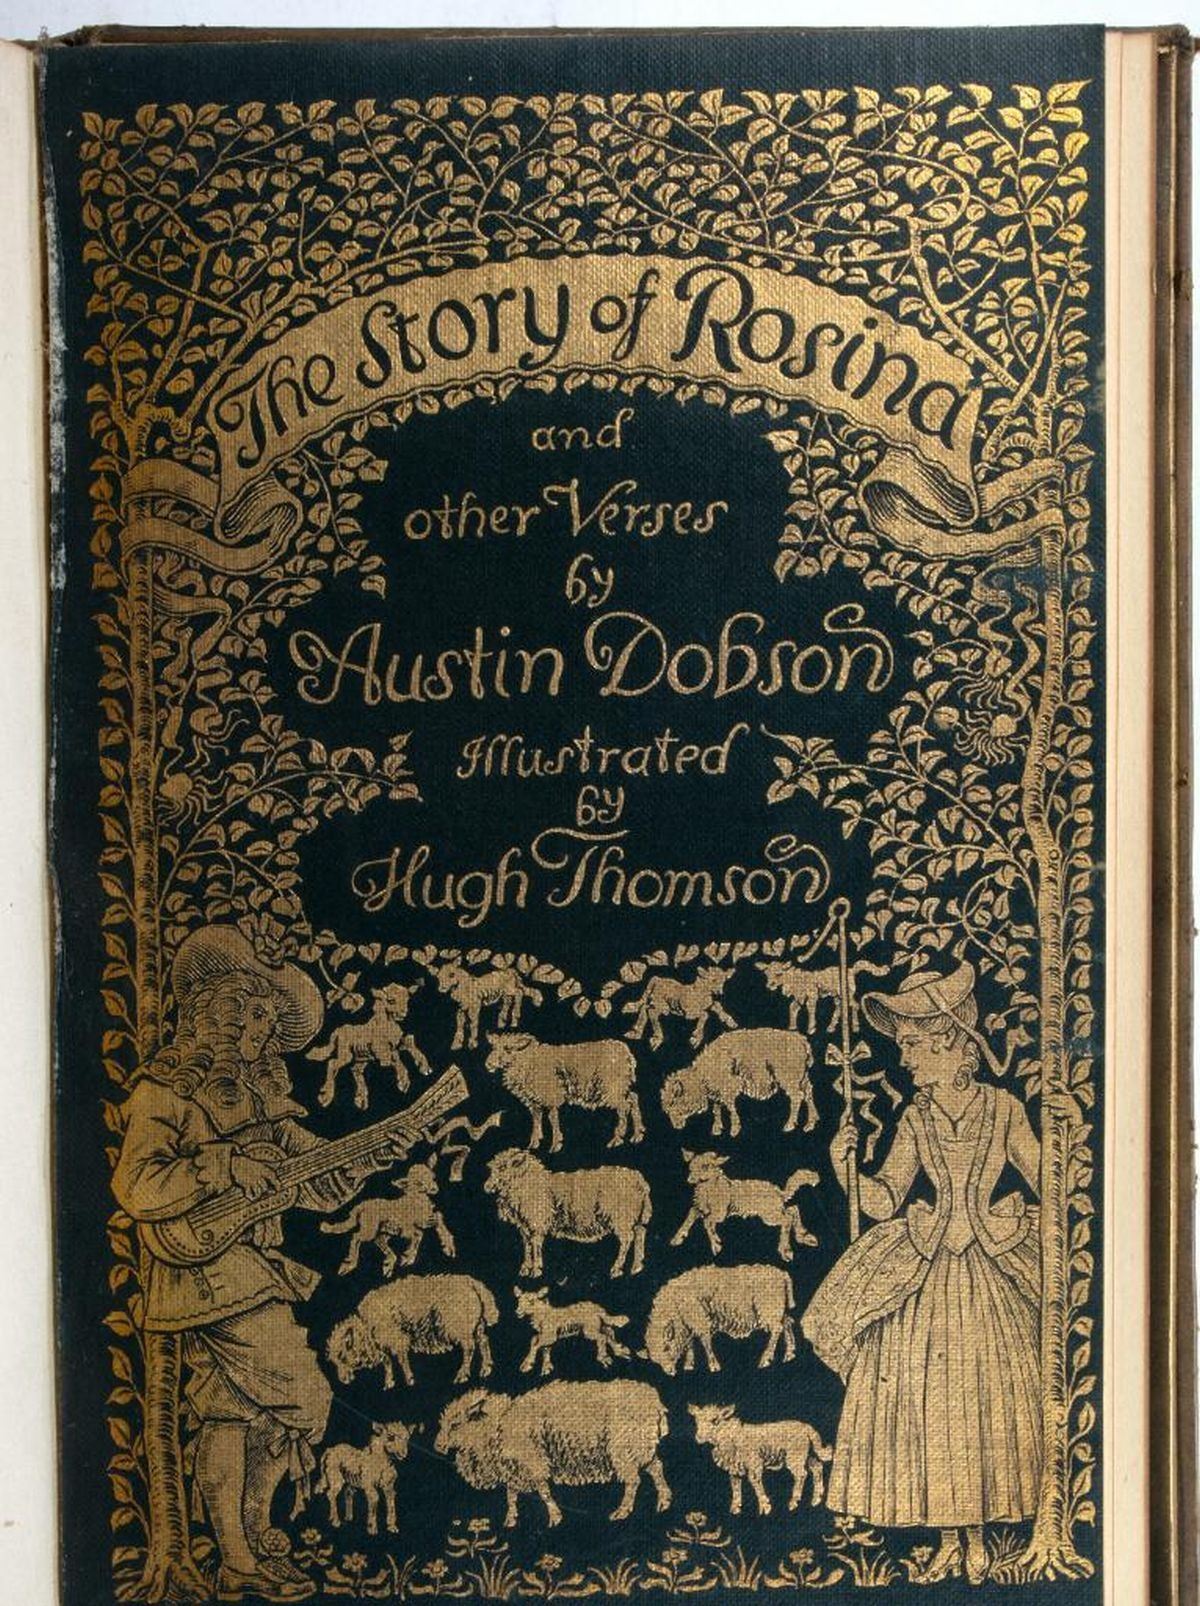 The Story of Rosina
and
other Verses
by
Austin Dobson
Illustrated
by
Hugh Thomson